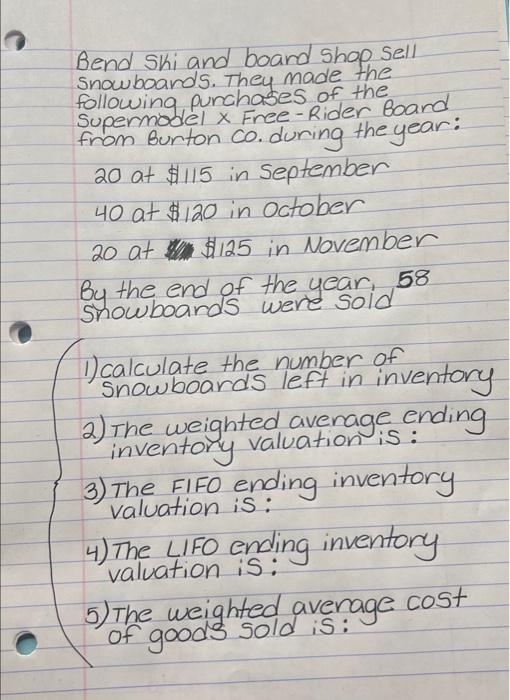 Bend Ski and board Shop sell
Snowboards. They made the
following purchases of the
Supermodel x Free-Rider Board
from Burton Co. during the year:
20 at $115 in September
40 at $120 in October
20 at $125 in November
By the end of the year, 58
Snowboards were sold
1) calculate the number of
Snowboards left in inventory
2) The weighted average ending
inventory valuation is:
3) The FIFO ending inventory
valuation is:
4) The LIFO ending inventory
valuation is:
5) The weighted average cost
of goods sold is: